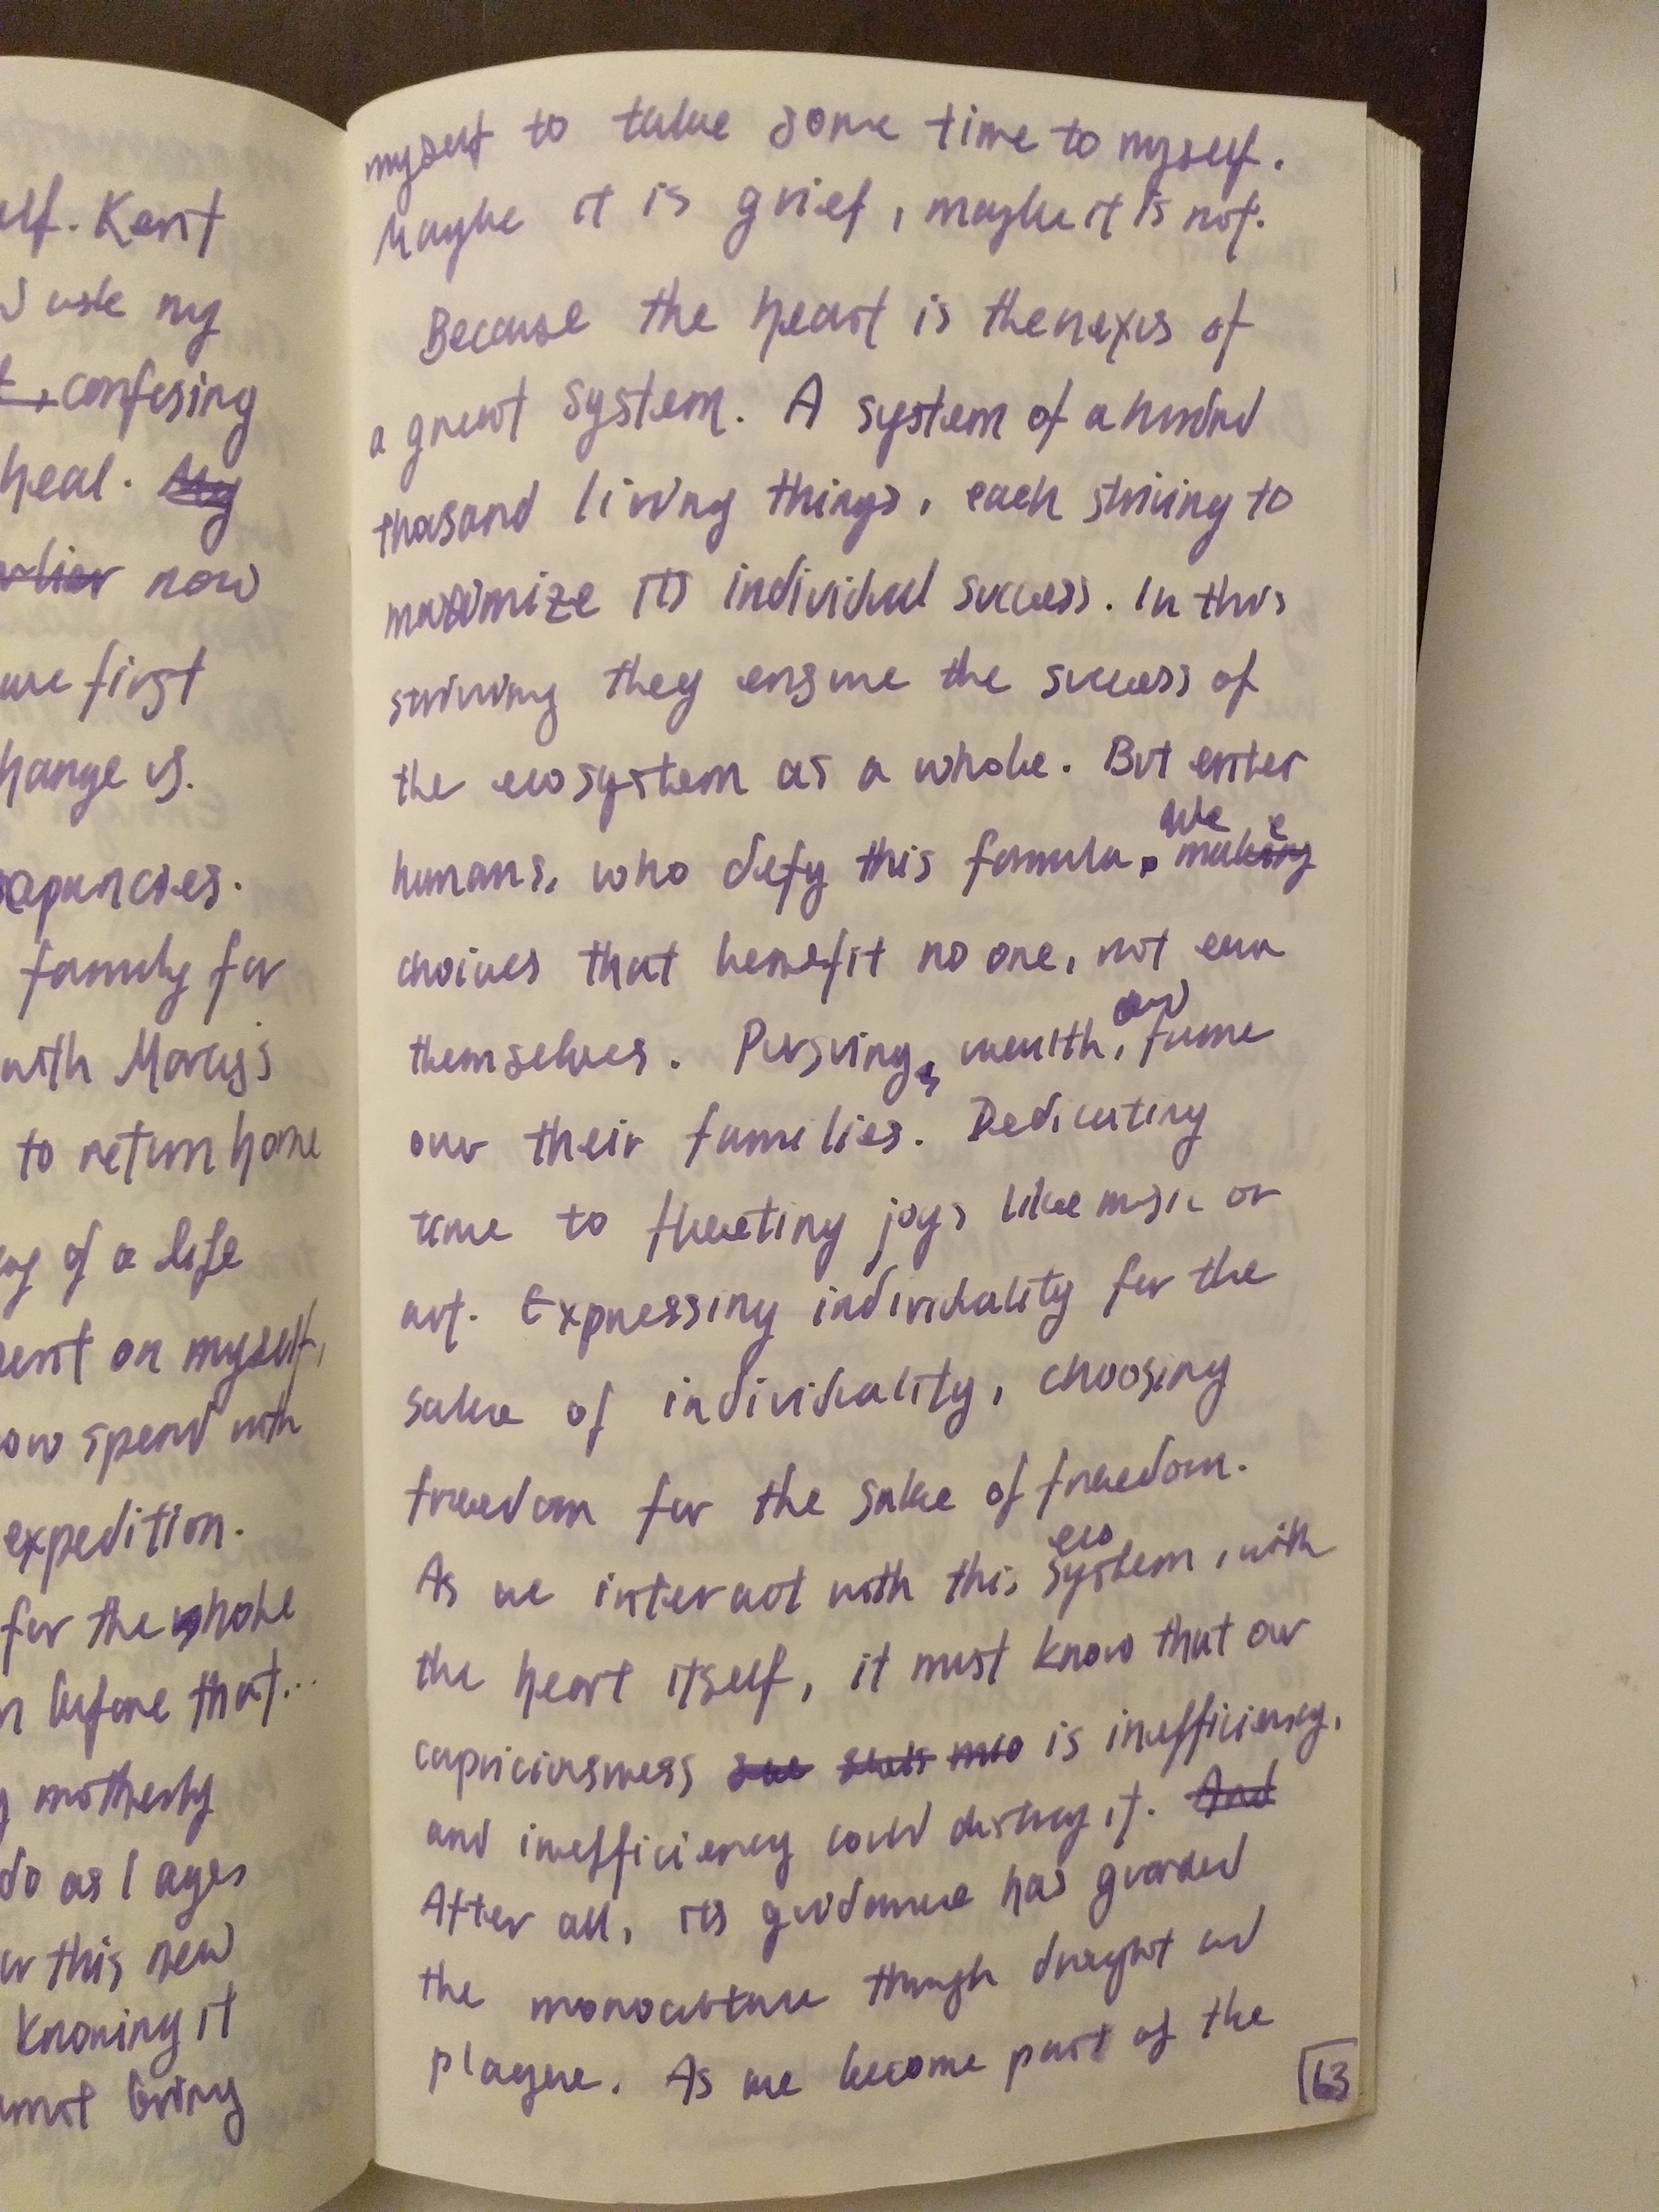 elf. Kant
I use my
confesing
heal. My
now
are first
hange is.
family for
with Marcus's
to return home
of a life
on myself,
spend with
expedition.
for the whole
before that...
motherly
do as I ages
this new
Knowing it
bring
myself to take some time to myself.
Maybe it is grief, maybe it is not.
Because the heart is the nexus of
a great system. A system of a hundrd
thosand living things, each striving to
maximize its individual success. In this
striving they ensure the success of
the ecosystem as a whole. But enter
humans, who defy this formula. We make
choices that benefit no one, not even
themselves. Pursuing wealth and fame
over their families. Dedicating
time to fleeting joys like music or
art. Expressing individuality for the
sake of individuality, choosing
freedom for the sake of freedom.
As we interact with this ecosystem, with
the heart itself, it must know that our
capriciousness is inefficiency,
and inefficiency could destroy it. And
After all, its guidance has guarded
the monoculture through drought and
plague. As we become part of the
63